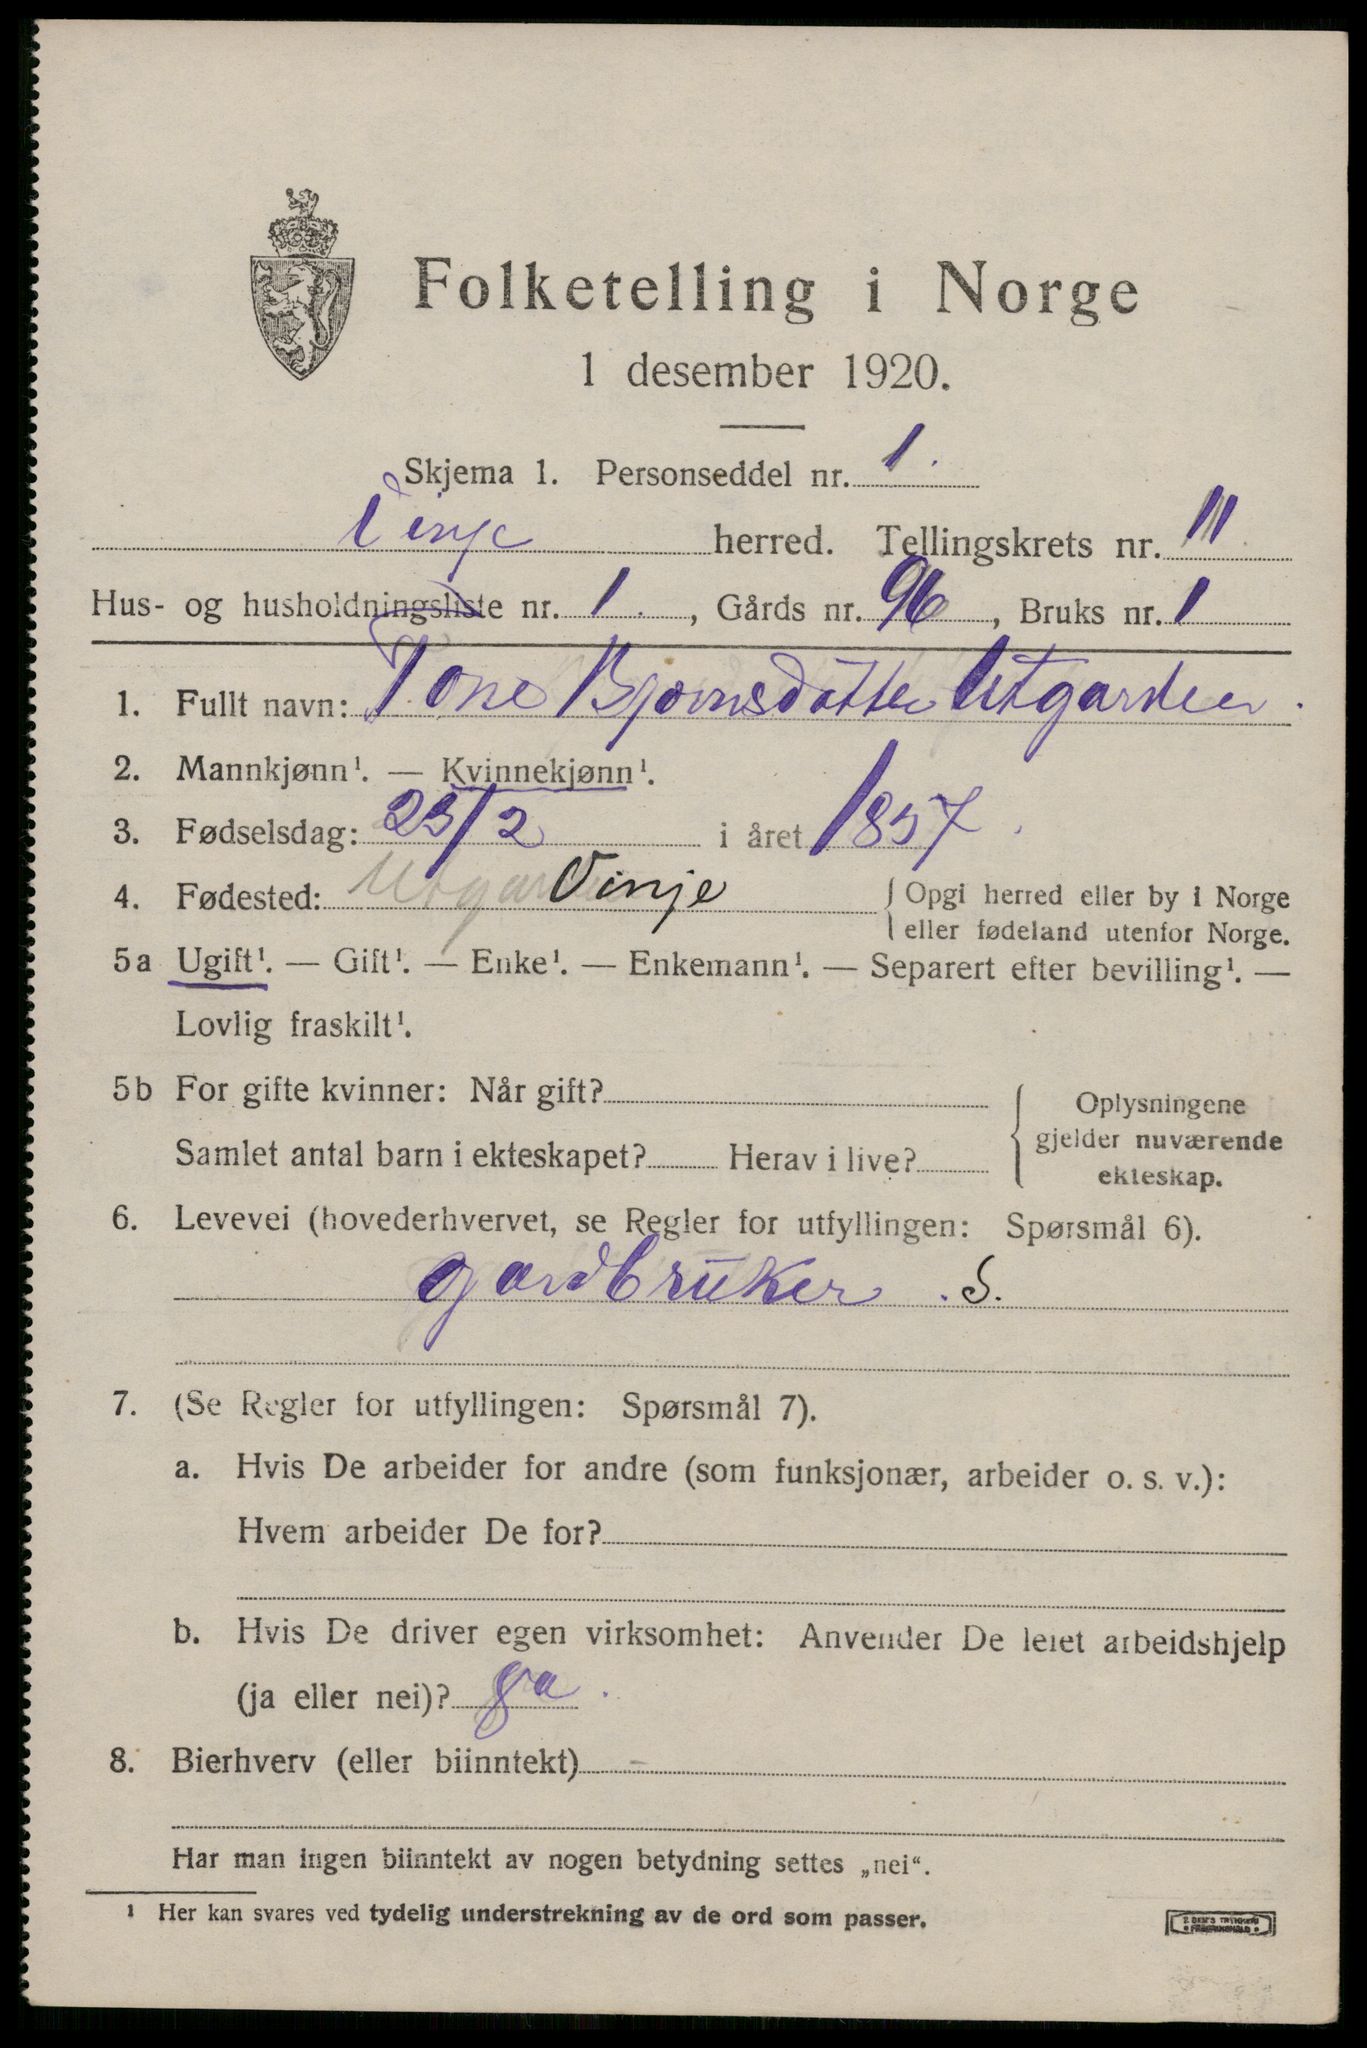 Folketelling i Norge
1 desember 1920.
Skjema 1. Personseddel nr. 1.
Vinje herred. Tellingskrets nr. 11
Hus- og husholdningsliste nr. 1. , Gårds nr. 96 , Bruks nr. 1
1. Fullt navn: Tone Bjørnsdatter Utgarden.
2. Mannkjønn¹. — Kvinnekjønn¹.
3. Fødselsdag: 23/2 i året 1857.
4. Fødested: Utgarden Vinje { Opgi herred eller by i Norge
eller fødeland utenfor Norge.
5a Ugift¹. — Gift¹. — Enke¹. — Enkemann¹. — Separert efter bevilling¹. —
Lovlig fraskilt¹.
5b For gifte kvinner: Når gift?
Samlet antal barn i ekteskapet? Herav i live?
Oplysningene
gjelder nuværende
ekteskap.
6. Levevei (hovederhvervet, se Regler for utfyllingen: Spørsmål 6).
gardbruker . S.
7. (Se Regler for utfyllingen: Spørsmål 7).
a. Hvis De arbeider for andre (som funksjonær, arbeider o. s. v.):
Hvem arbeider De for?
b. Hvis De driver egen virksomhet: Anvender De leiet arbeidshjelp
(ja eller nei)? ja.
8. Bierhverv (eller biinntekt) -
Har man ingen biinntekt av nogen betydning settes „nei“.
¹ Her kan svares ved tydelig understrekning av de ord som passer.